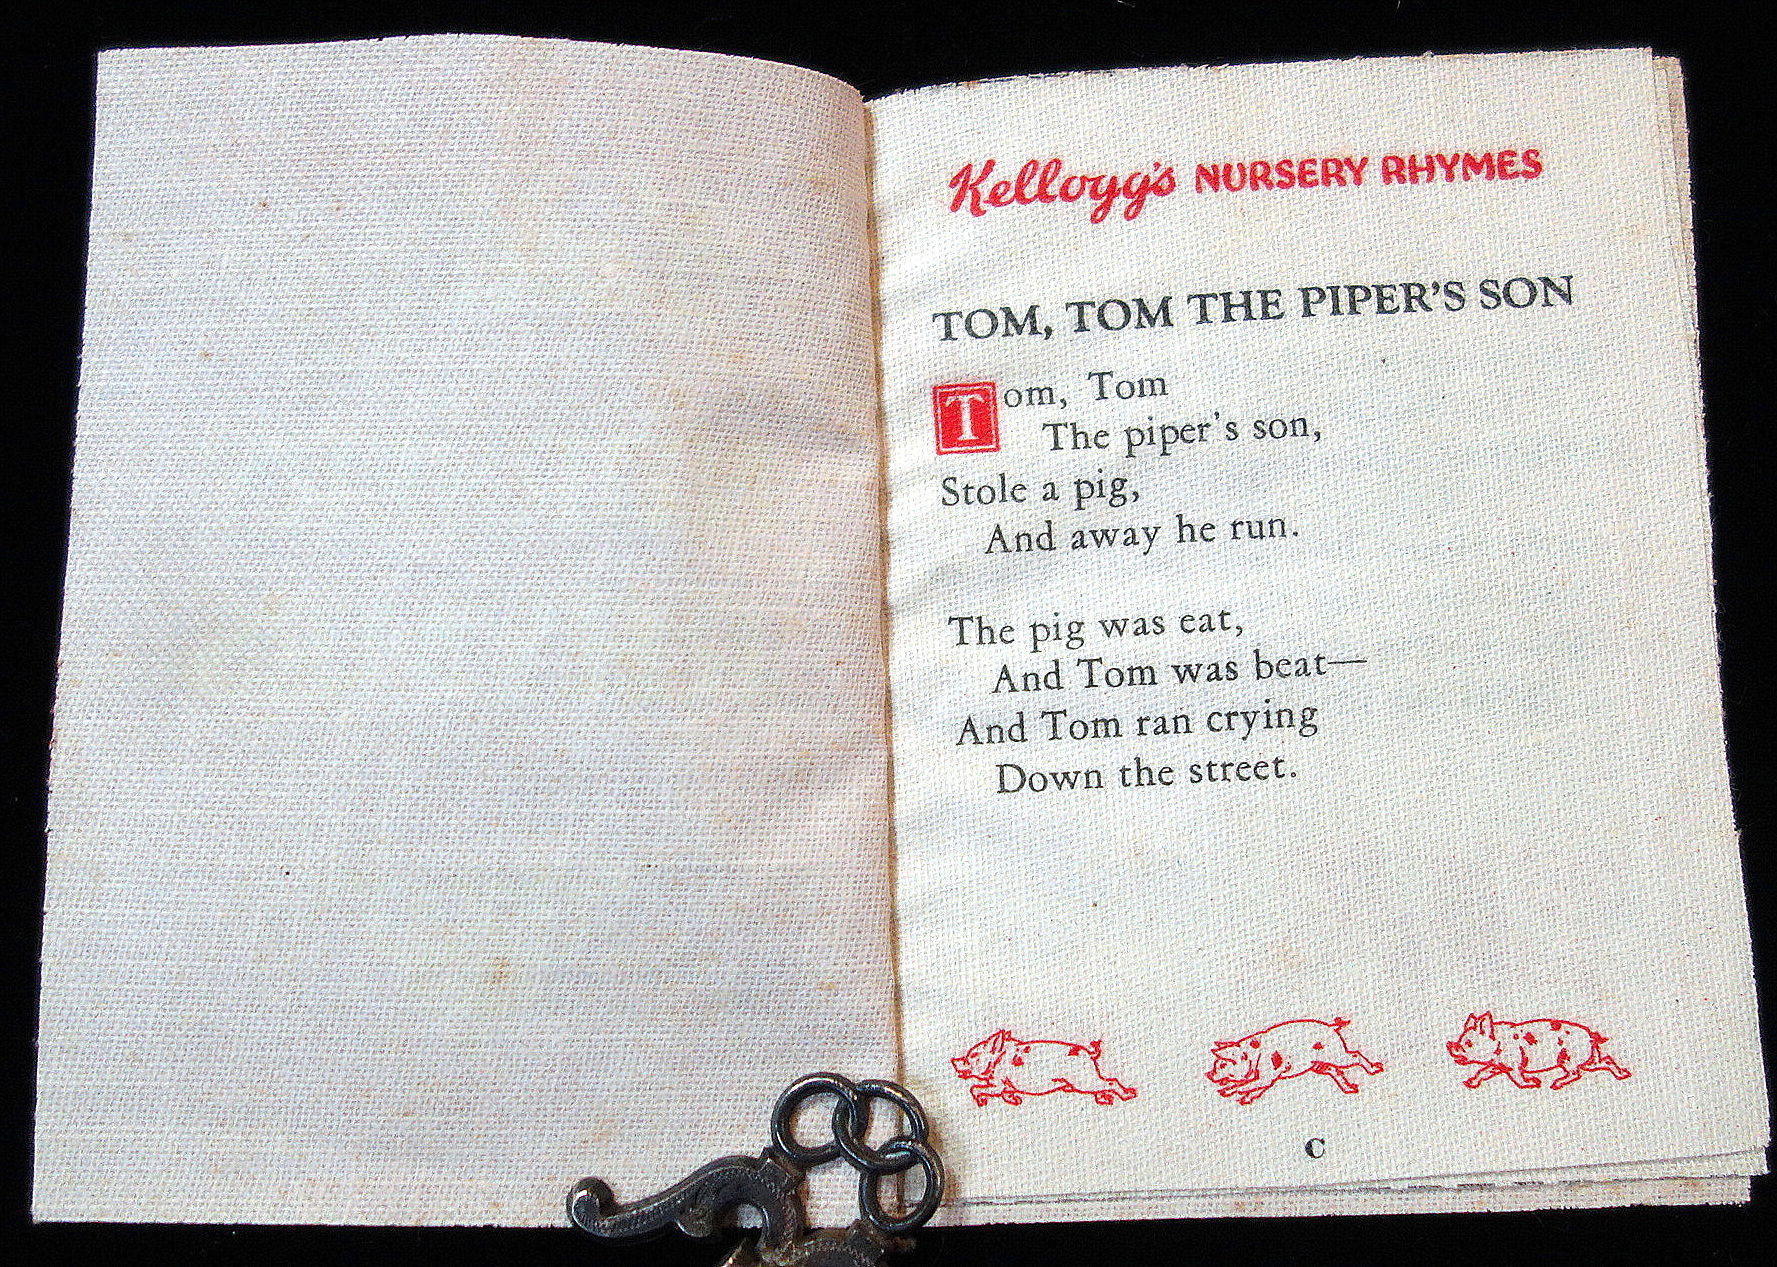 Kellogg's NURSERY RHYMES
TOM, TOM THE PIPER'S SON
Tom, Tom
The piper's son,
Stole a pig,
And away he run.
The pig was eat,
And Tom was beat—
And Tom ran crying
Down the street.
C